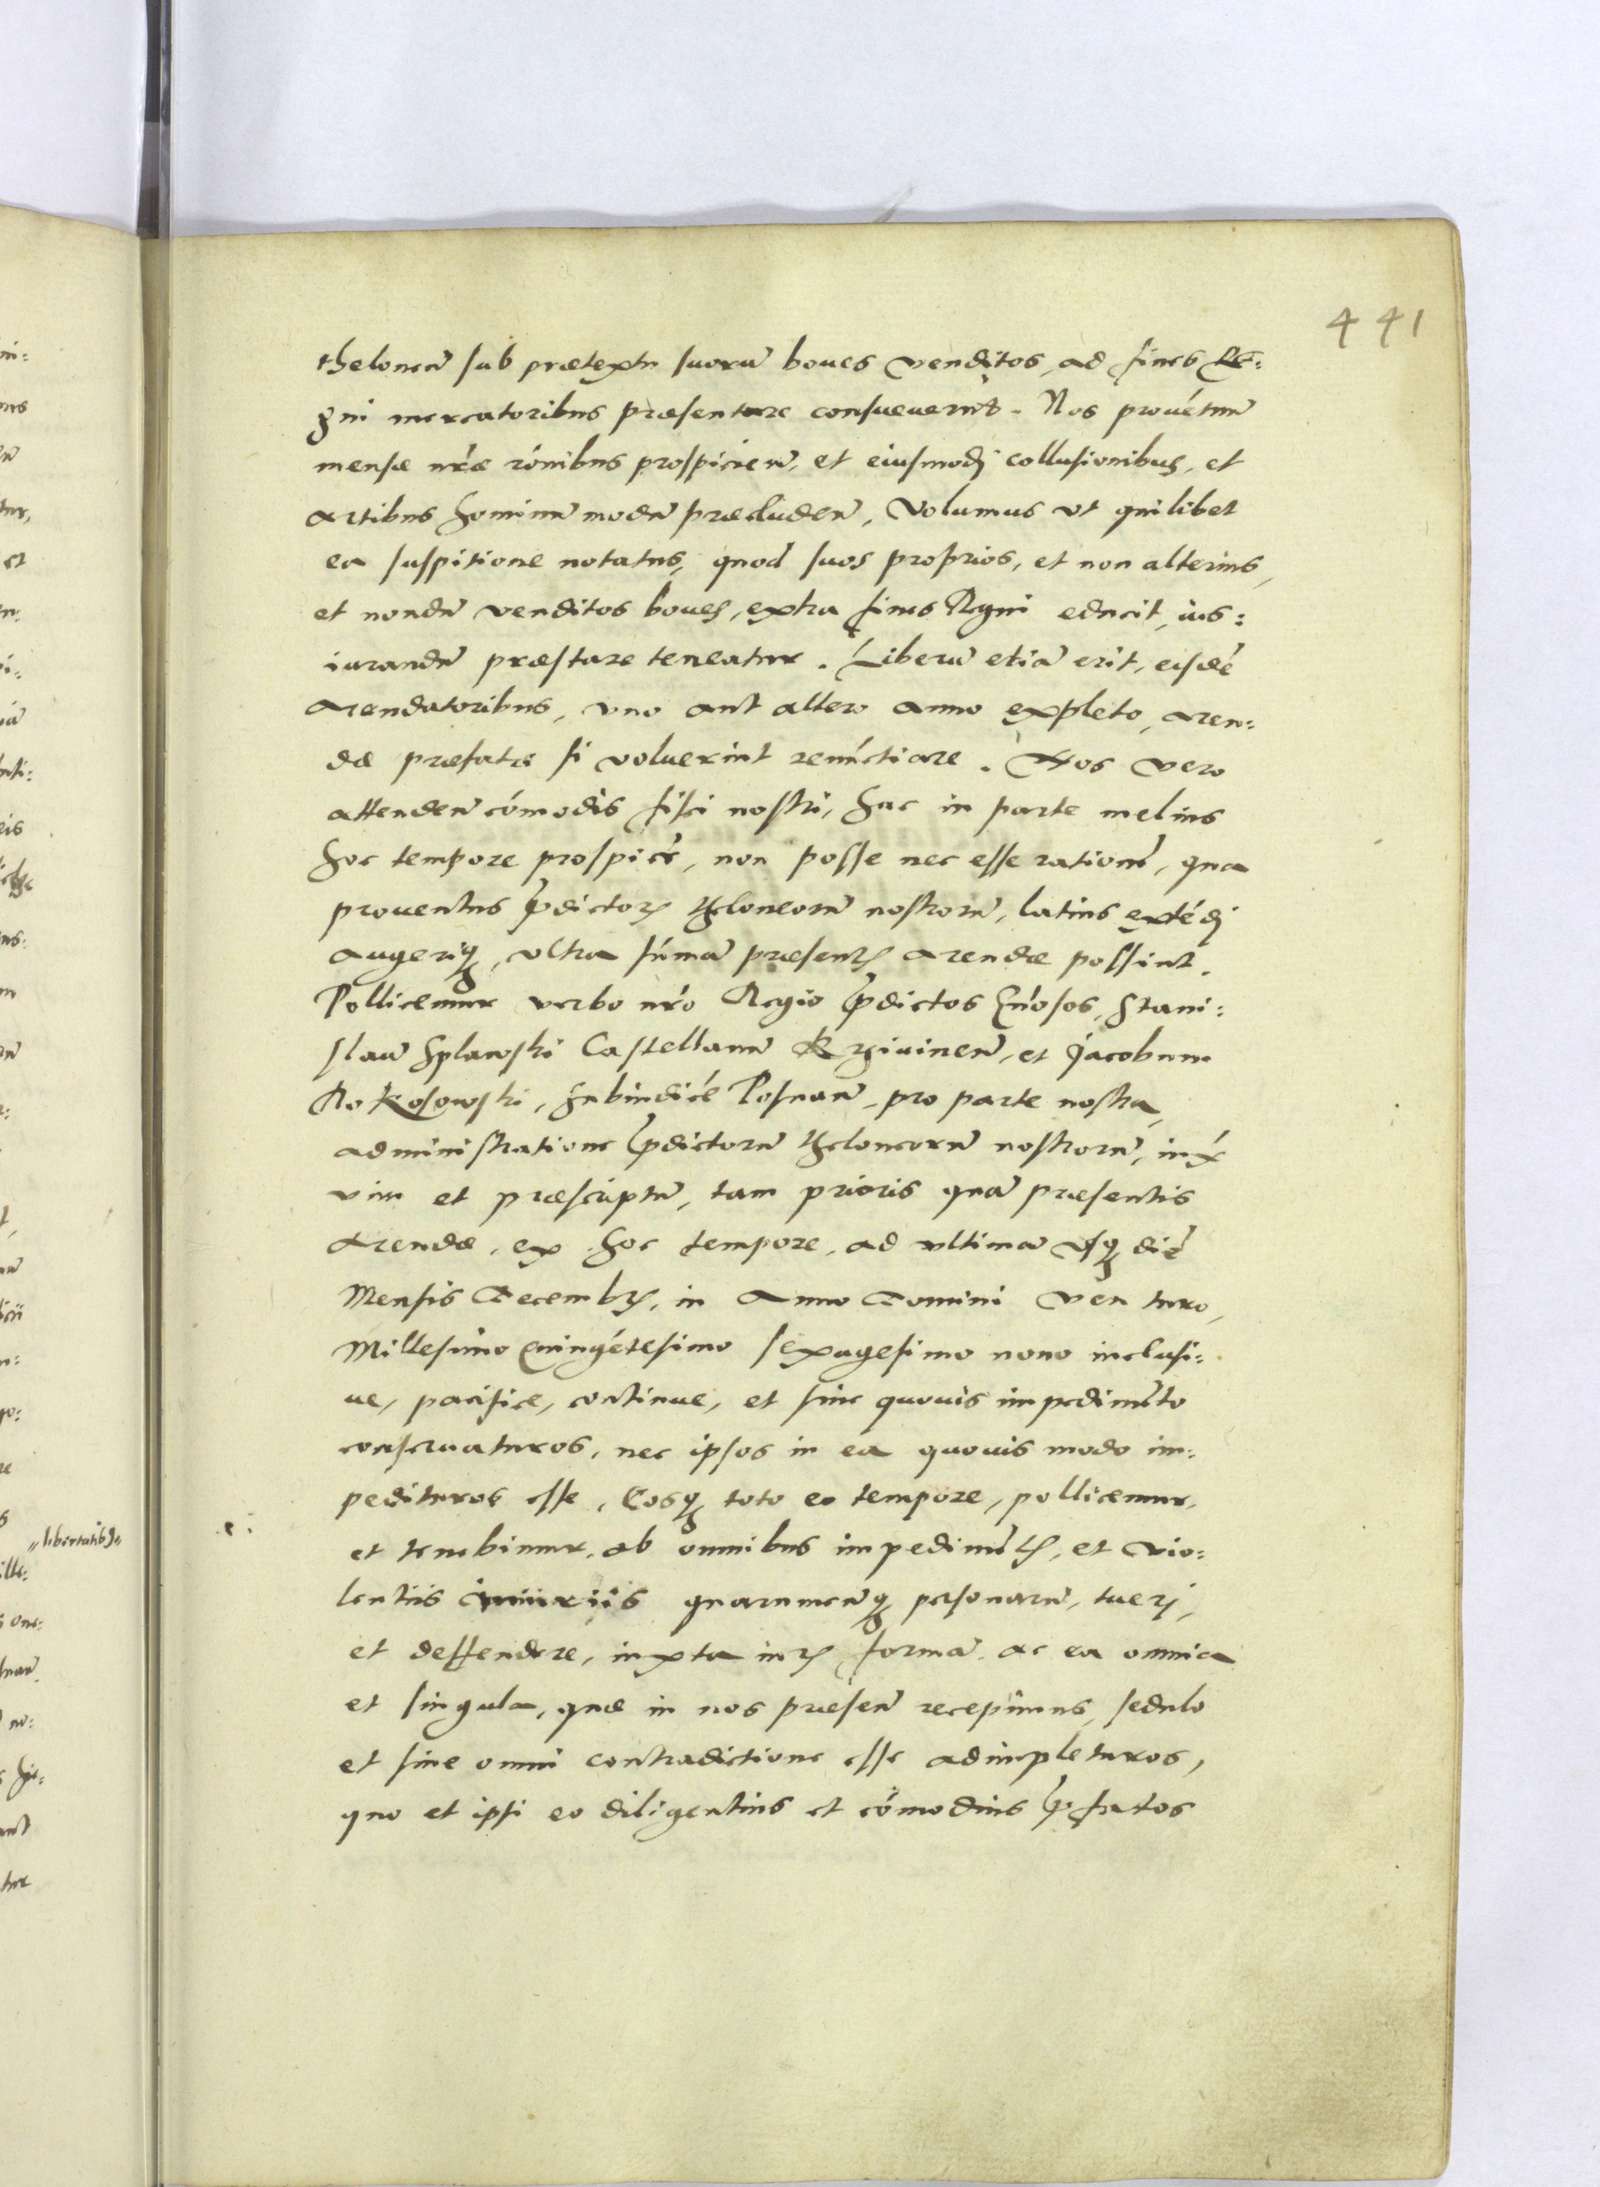 441
theloneũ sub prætextu suorũ boues venditos, ad fines Re:
gni mercatoribus præsentare consueuerunt. Nos prouẽtuũ
mensæ nr̃æ rõnibus prospicieñ, et eiusmodj collusionibus, et
artibus hominũ modũ præcludeñ, Volumus vt quilibet
ea suspitione notatus, quod suos proprios, et non alterius,
et nondũ venditos boues, extra fines Regni educit, ius:
iurandũ præstare teneatur. Liberũ etiã erit, eisdẽ
arendatoribus, vno aut altero anno expleto, aren:
dæ præfatæ si voluerint renũctiare. Nos vero
attendeñ cõmodis fisci nostri, hac in parte melius
hoc tempore prospicẽ, non posse nec esse rationẽ, qua
prouentus p̃dictorꝝ theloneorũ nostrorũ, latius extẽdj
augeriqꝫ, vltra sũmã præsentis arendæ possint.
Pollicemur verbo nr̃o Regio p̃dictos Gñosos, Stani:
slaũ Splawski Castellanũ Krziuineñ, et Jacobum
Rokosowski, Subiudicẽ Posnañ, pro parte nostra,
administratione p̃dictorũ theloneorũ nostrorũ, iux̃
vim et præscriptũ, tam prioris quã præsentis
arendæ, ex hoc tempore, ad vltimã vsqꝫ diẽ
Mensis Decembris, in Anno Domini ven turo,
Millesimo Quingẽtesimo sexagesimo nono inclusi:
ue, pacifice, continue, et sine quouis impedimẽto
conseruaturos, nec ipsos in ea quouis modo im:
pedituros esse, Eosqꝫ toto eo tempore, pollicemur,
et tenebimur, ab omnibus impedimẽtis, et vio:
lentiis iniuriis quarumcunqꝫ personarũ, tuerj,
et deffendere, iuxta iuris formã. ac ea omnia
et singula, quæ in nos præseñ recepimus, sedulo
et sine omni contradictione esse adimpleturos,
quo et ipsi eo diligentius et cõmodius p̃fatos
„libertatib9„